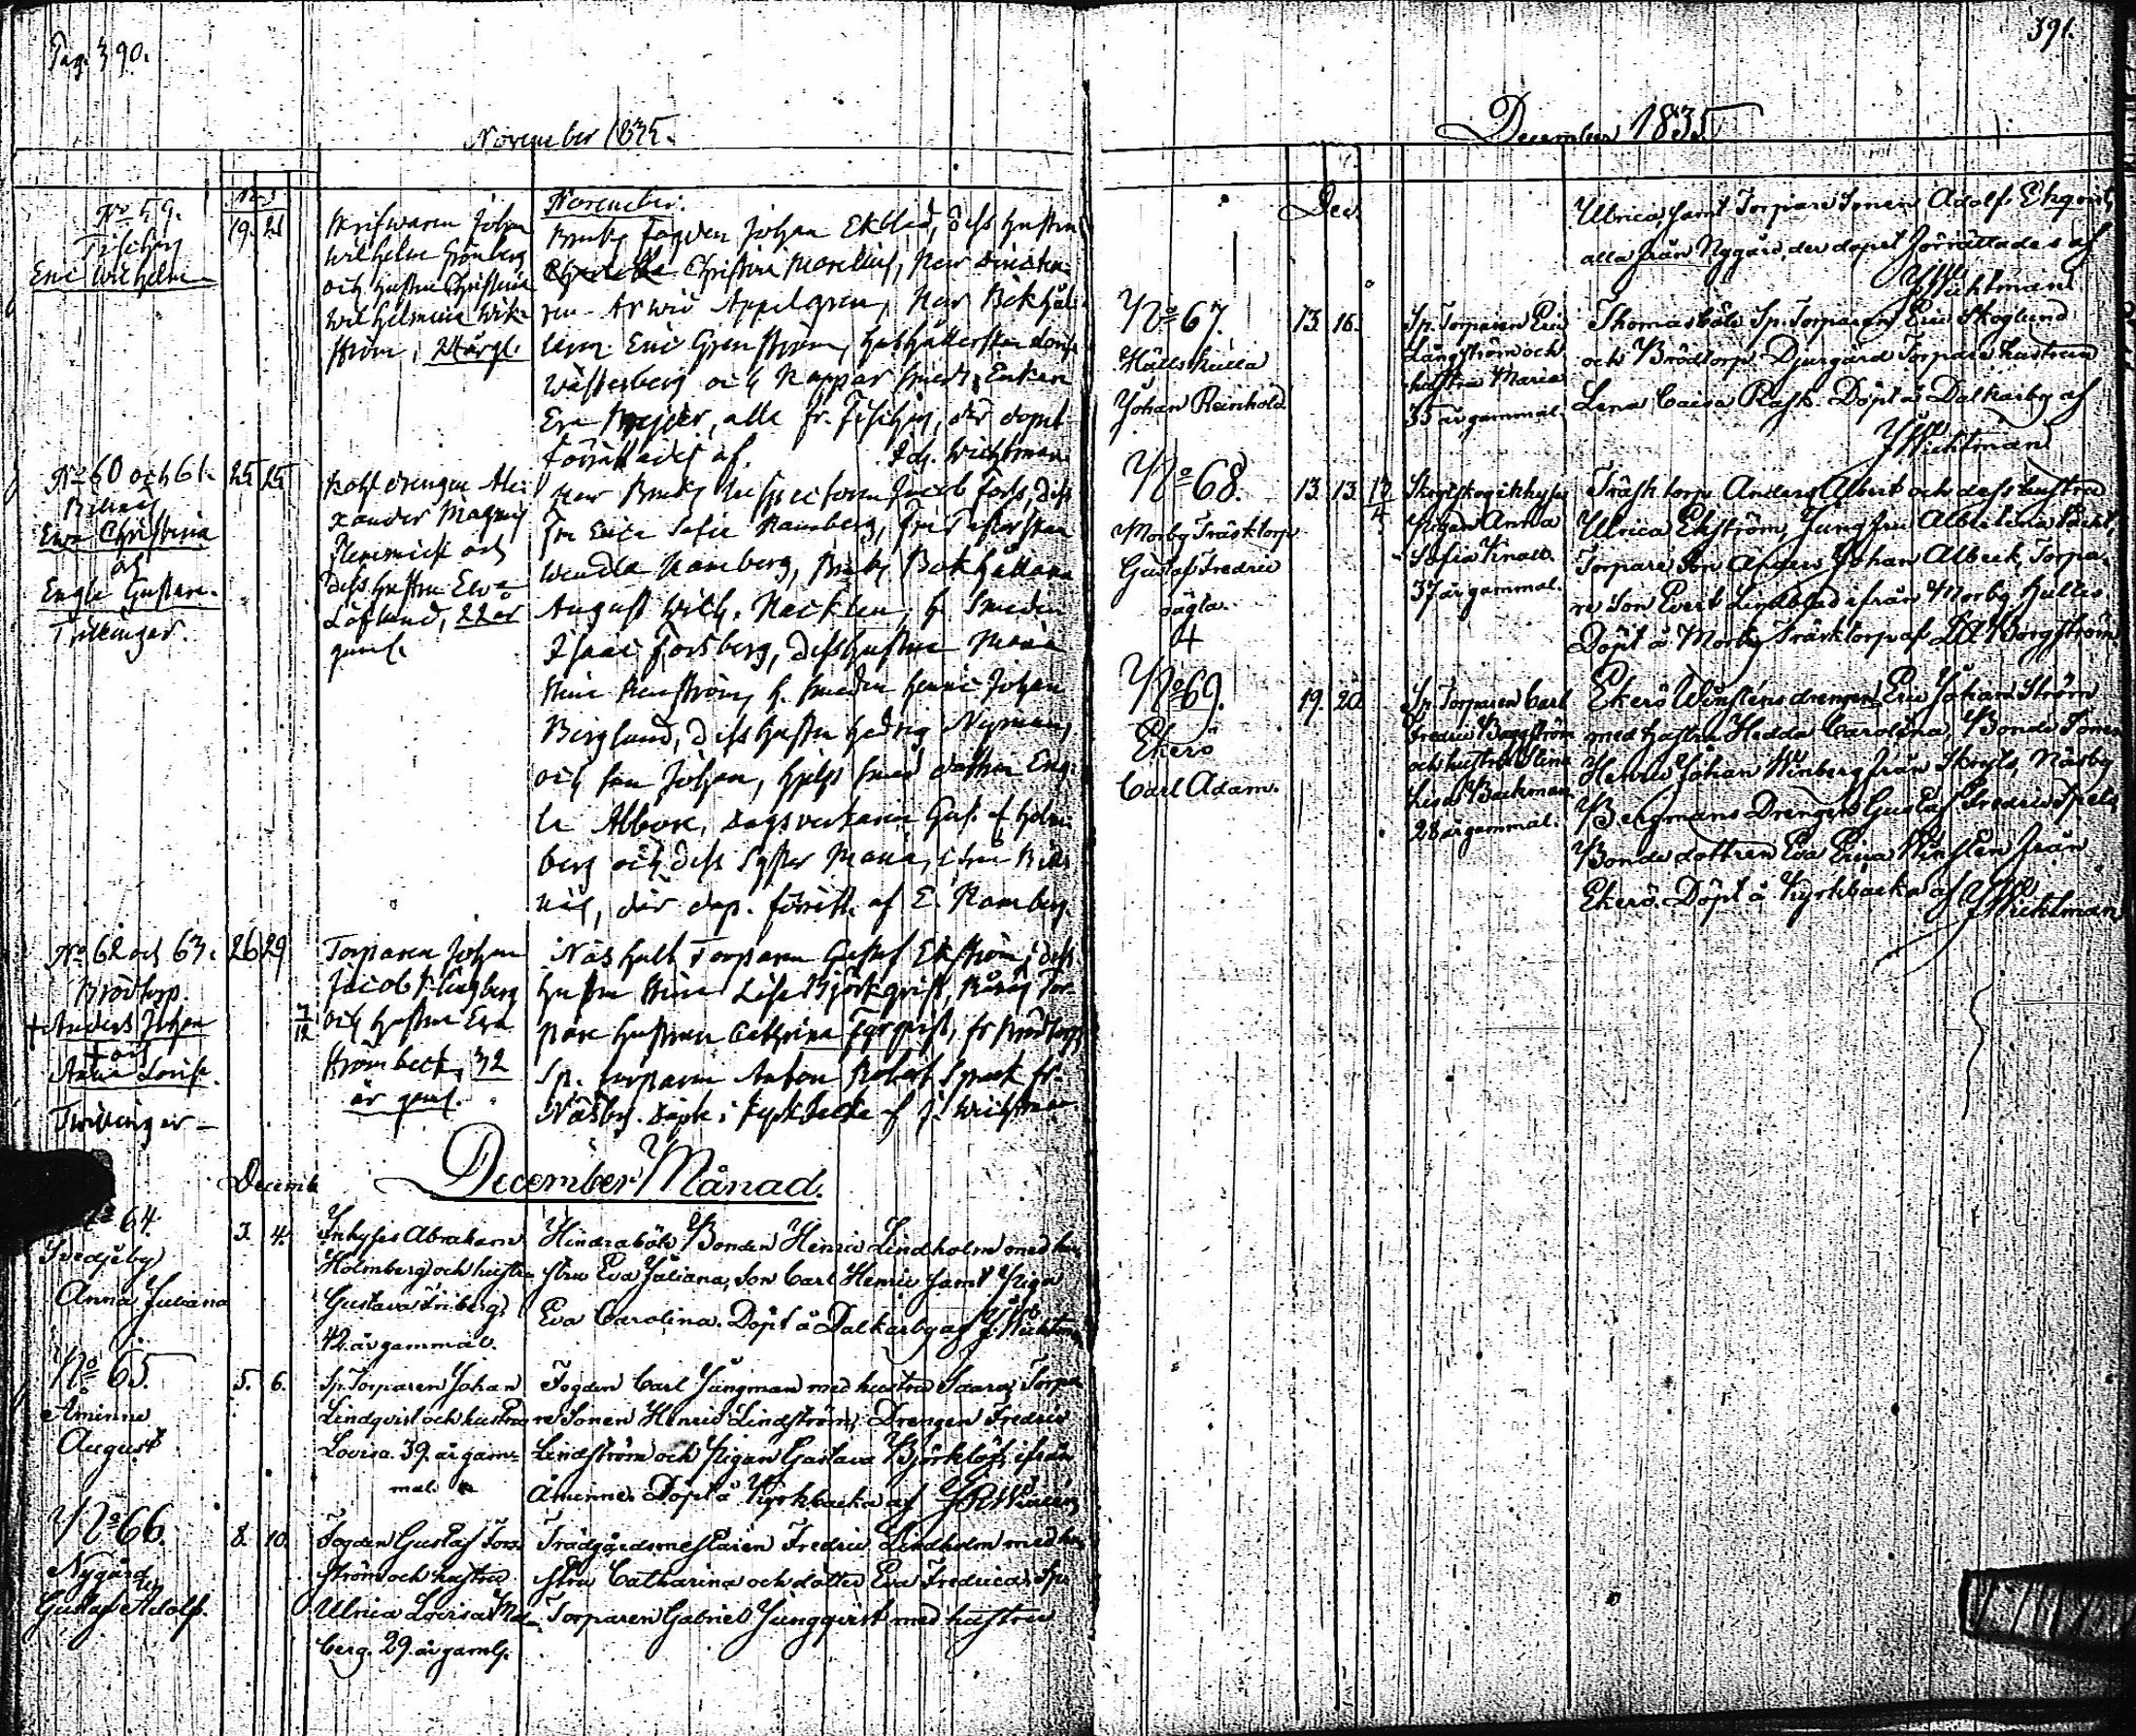 Pag. 390.
November 1835.
November.
No 59.
Fiskars
Eric Wilhelm
19. 21
Johan
Wilhelm Grönberg
och hustru Christina
Wilhelmina Wik-
ström, 24 årgl.
Bruks Fogden Johan Ekblad, dess hustru
Christina Morelius, Herr Direkteu-
ren Arwid Appelgren, Herr Bokhål-
laren Eric Grenström,
Westerberg och Koppar Smeds Enkan
Eva Meijer, alla fr. Fiskars, där dopet
förrättades af. Joh. Wichtman
No 60 och 61.
Billnäs
Ewa Christina
och
Engla Gustava.
Tvillingar.
25 25
Kohl drengen Ale-
xander Magnus
och
Dess hustru Ewa
Löflund, 22 år
gaml.
Herr Bruks Inspectoren Jacob Fors, dess
Fru Erica Sofia Ramberg,
Wendla Ramberg, Bruks Bokhållaren
August Wilh. Hacklin, h. Smeden
Isaac Forsberg, dess hustru Maria
Stina Renström, h. Smeden Henric Johan
Berglund, dess hustru Hedvig Nyman,
och son Johan, hjelp smed dottren Eng-
la Abborre, Dagsverkaren Gust. Holm-
berg och dess Syster Maria, ifrån Bill-
näs, där dop. förrätt. af E. Ramberg.
No 62 och 63.
Brödtorp.
+ Anders Johan
+ och
Anna Lovisa.
Tvillingar -
26 29
7/12
Torparen Johan
Jacob Klingberg
och hustru Eva
Strömbeck, 32
år gaml.
Näshult Torparen Gustaf Ekström, dess
hustru Stina Lisa Björkqvist, Tor-
pare hustrun Cathrina Fogqvist, fr Brödtorp,
Sp. torparen Anton Robert Spack fr.
Näsby. Döpte i Kyrkbacka af J. Wichtman
December Månad.
Decemb
64.
Svedjeby
Anna Juliana
3. 4.
Inhyses Abraham
Holmberg och hustru
Gustava Friberg,
42 år gammal.
Hindrabole Bonden Henric Lindholm med hu-
stru Eva Juliana, Son Carl Henric samt Pigan
Eva Carolina. Döpt å Dalkarby af J. Wichtman
No 65.
Åminne
August
5. 6.
Sp. Torparen Johan
Lindqvist och hustru
Lovisa. 39 år gam-
mal.
Fogden Carl Jungman med hustru Saara, Torpa-
re Sonen Henric Lindström, Drengen Fredric
Lindström och Pigan Gustava Björklöf, ifrån
Åminne. Döpt å Kyrkbacka af
No 66.
Nygård
Gustaf Adolf.
8. 10.
Fogden Gustaf Fors-
ström och hustru
Ulrica Lovisa Mal-
berg. 29. år gaml.
Trädgårdsmestaren Fredric Lindholm med hu-
stru Catharina och dotter Eva Fredrica, Sp.
Torparen Gabriel Jungqvist med hustru
391.
December 1835
Dec.
Ulrica, samt Torpare Sonen Adolf Ekqvist,
alla från Nygård, der dopet förrättades af
J Wichtman
No 67.
Hällskulla
Johan Reinhold
13. 16.
Sp. Torparen Eric
Långström och
hustru Maria
35 år gammal.
Thomasböle Sp. Torparen Eric Skoglund
och Brödtorps Djurgård Torpare hustrun
Lena Caisa Rask. Döpt å Dalkarby af
J Wichtman
No 68.
Morby Träsktorp
Gustaf Fredric
oägta.
+
13. 13.
Pigan Anna
Sofia
37 år gammal.
Träsktorp Anders Albert och dess hustru
Ulrica Ekström, Jungfru Albertina
Torpare Son Anders Johan Albeck, Torpa-
re Son Evert Lindblad ifrån Morby Hulta
Döpt å Morby Träsktorp af Borgström
No 69.
Ekerö
Carl Adam.
19. 20.
Sp. Torparen Carl
Fredric Bergström
och hustru Stina
Lisa Backman
28 år gammal.
Ekerö Winstens drengen Eric Johan Ström
med hustru Hedda Carolina, Bonde Sonen
Henric Johan Winberg från Skogls, Näsby
Bergmans Drengen Gustaf Fredric
Bonde dottren Eva Erica Winsten från
Ekerö. Döpt å Kyrkbacka af J Wichtman